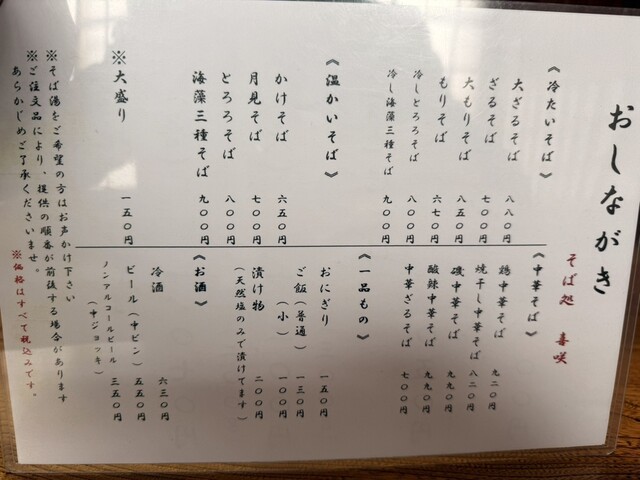 おしながき
そば処 喜咲
《冷たいそば》
大ざるそば 八八〇円
ざるそば 七〇〇円
大もりそば 八五〇円
もりそば 六七〇円
冷しとろろそば 八〇〇円
冷し海藻三種そば 九〇〇円
《温かいそば》
かけそば 六五〇円
月見そば 七〇〇円
とろろそば 八〇〇円
海藻三種そば 九〇〇円
※大盛り 一五〇円
《中華そば》
鶏中華そば 九二〇円
焼干し中華そば 八二〇円
磯中華そば 九九〇円
酸辣中華そば 九九〇円
中華ざるそば 七〇〇円
《一品もの》
おにぎり 一五〇円
ご飯(普通) 一三〇円
(小) 一〇〇円
漬け物 二〇〇円
(天然塩のみで漬けてます)
《お酒》
冷酒 六三〇円
ビール(中ビン) 五五〇円
ノンアルコールビール 三五〇円
(中ジョッキ)
※そば湯をご希望の方はお声かけ下さい
※ご注文品により、提供の順番が前後する場合があります
あらかじめご了承くださいませ。
※価格はすべて税込みです。